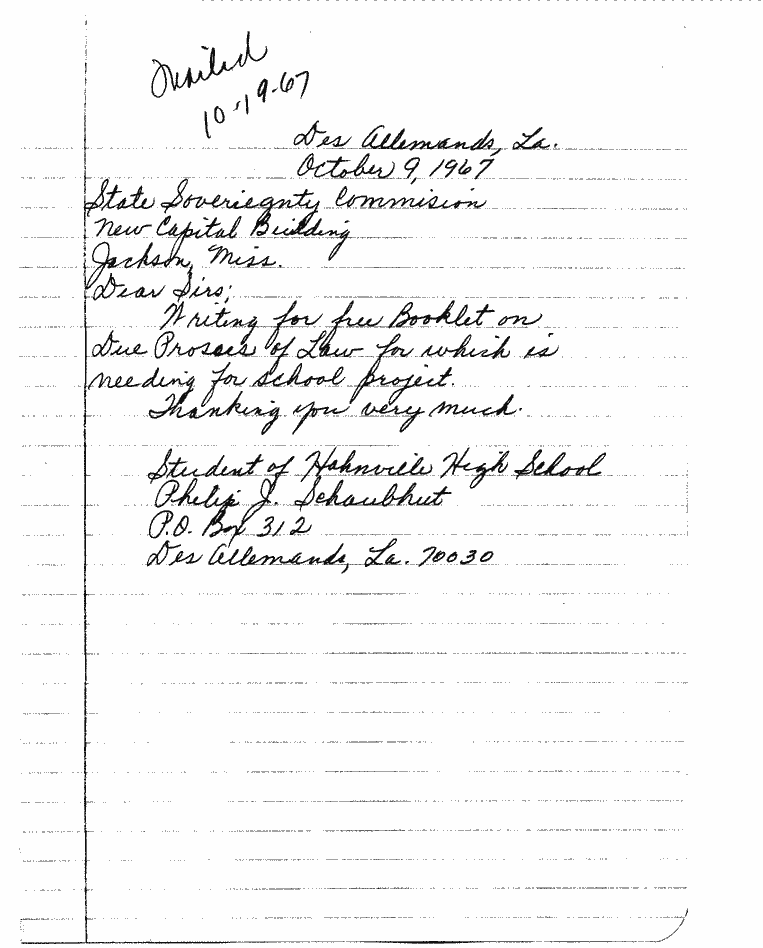 Mailed
10-19-67
Des Allemands, La.
October 9, 1967
State Soveriegnty Commision
New Capital Building
Jackson, Miss.
Dear Sirs;
Writing for free Booklet on
Due Prosses of Law for which is
needing for school project.
Thanking you very much.
Student of Hahnville High School
Philip J. Schaubhut
P.O. Box 312
Des Allemands, La. 70030